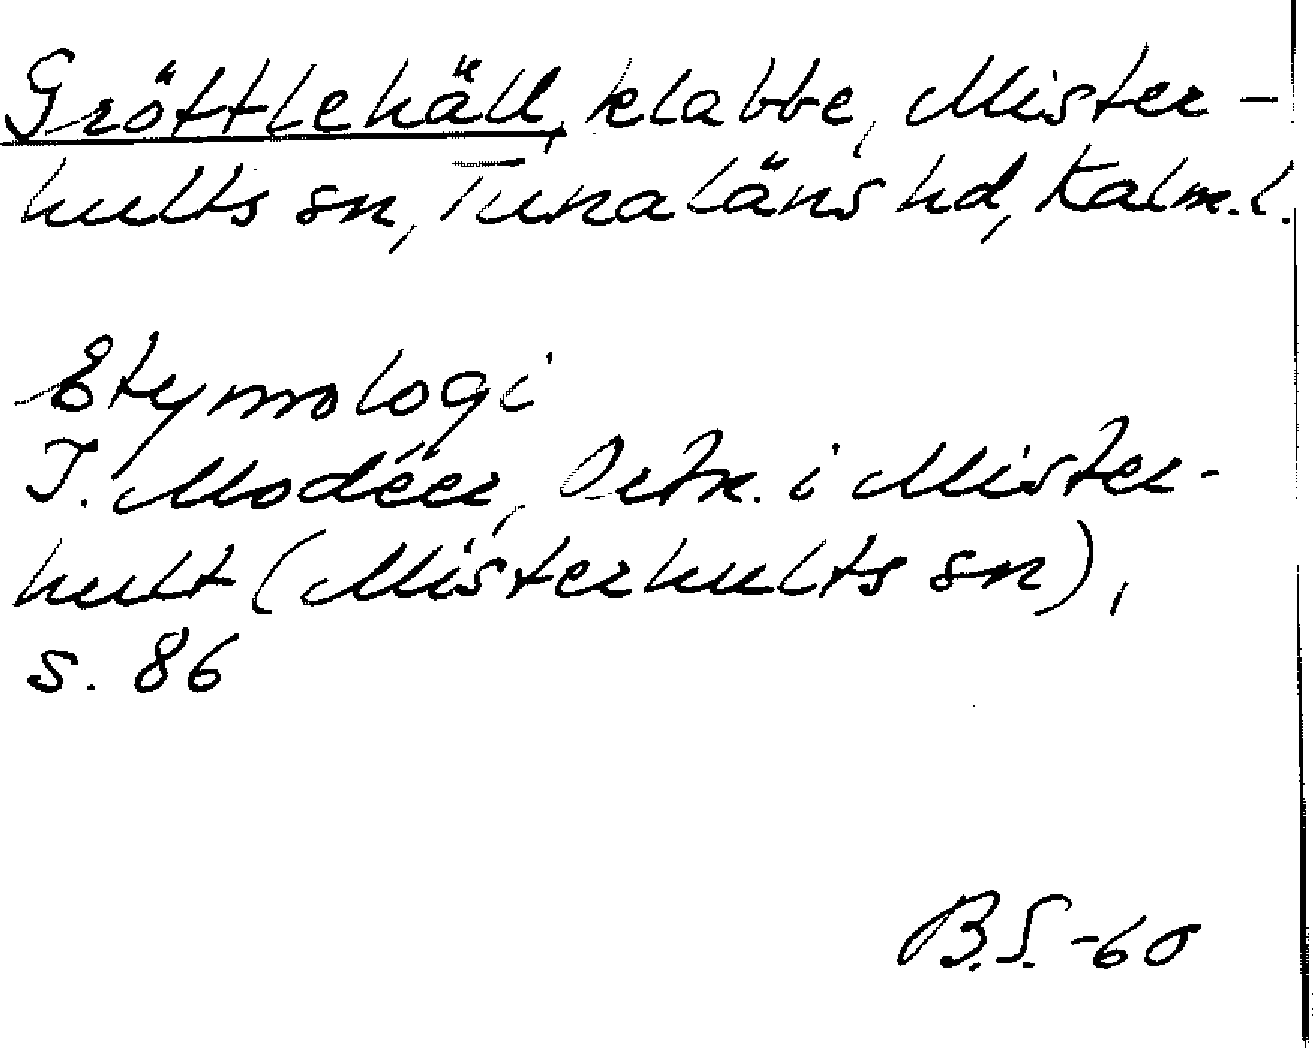 Gröttlehäll, klabbe, Mister-
hults sn, Tunaläns hd, Kalm. l.
Etymologi
I. Modéer, Ortn. i Mister-
hult (Misterhults sn),
s. 86
B.S. -60